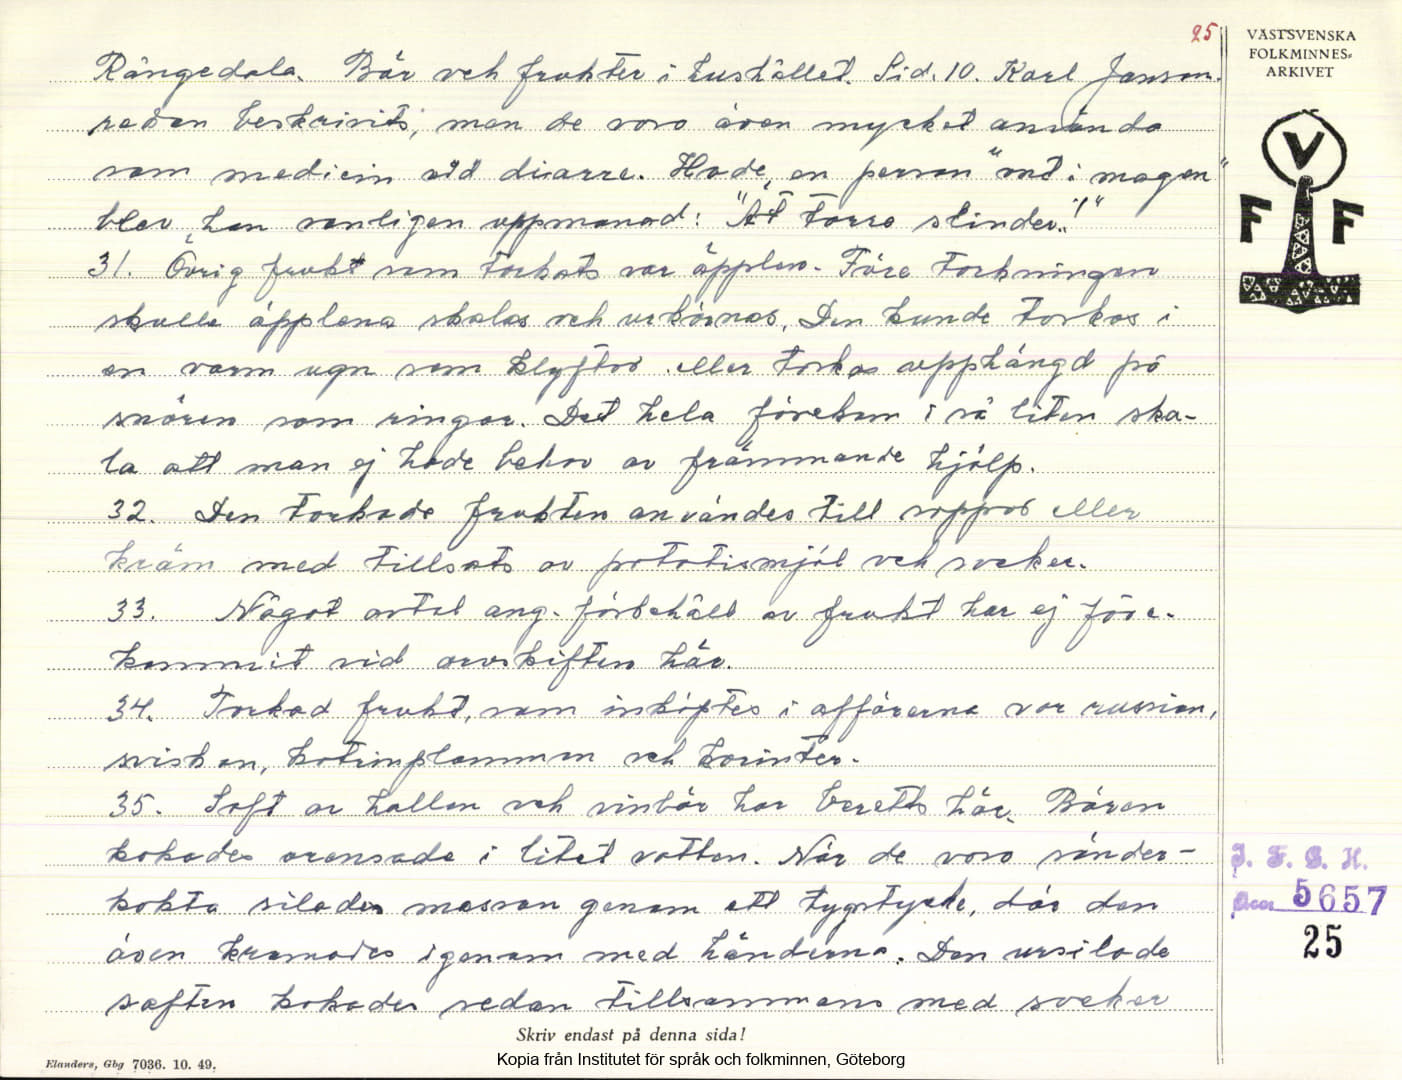 25
VÄSTSVENSKA
FOLKMINNES=
ARKIVET
V
F F
Rångedala. Bär och frukter i hushållet. Sid. 10. Karl Janson.
redan beskrivits, men de voro även mycket använda
som medicin vid diarre. Hade en person "ont i magen"
blev han vanligen uppmanad: "Ät torra slinder!"
31. Övrig frukt som torkats var äpplen. Före torkningen
skulle äpplena skalas och urkärnas. Den kunde torkas i
en varm ugn som klyftor eller torkas upphängd på
snören som ringar. Det hela förekom i så liten ska-
la att man ej hade behov av främmande hjälp.
32. Den torkade frukten användes till soppor eller
kräm med tillsats av potatismjöl och socker.
33. Något avtal ang. förbehåll av frukt har ej före-
kommit vid arvskiften här.
34. Torkad frukt, som inköptes i affärerna var russian,
sviskon, katrinplommon och korinter.
35. Saft av hallon och vinbär har beretts här. Bären
kokades orensade i litet vatten. När de voro sönder-
kokta silades massan genom ett tygstycke, där den
även kramades igenom med händerna. Den ursilade
saften kokades sedan tillsammans med socker
I. F. G. H.
Acc 5657
25
Skriv endast på denna sida!
Elanders, Gbg 7036. 10. 49.
Kopia från Institutet för språk och folkminnen, Göteborg